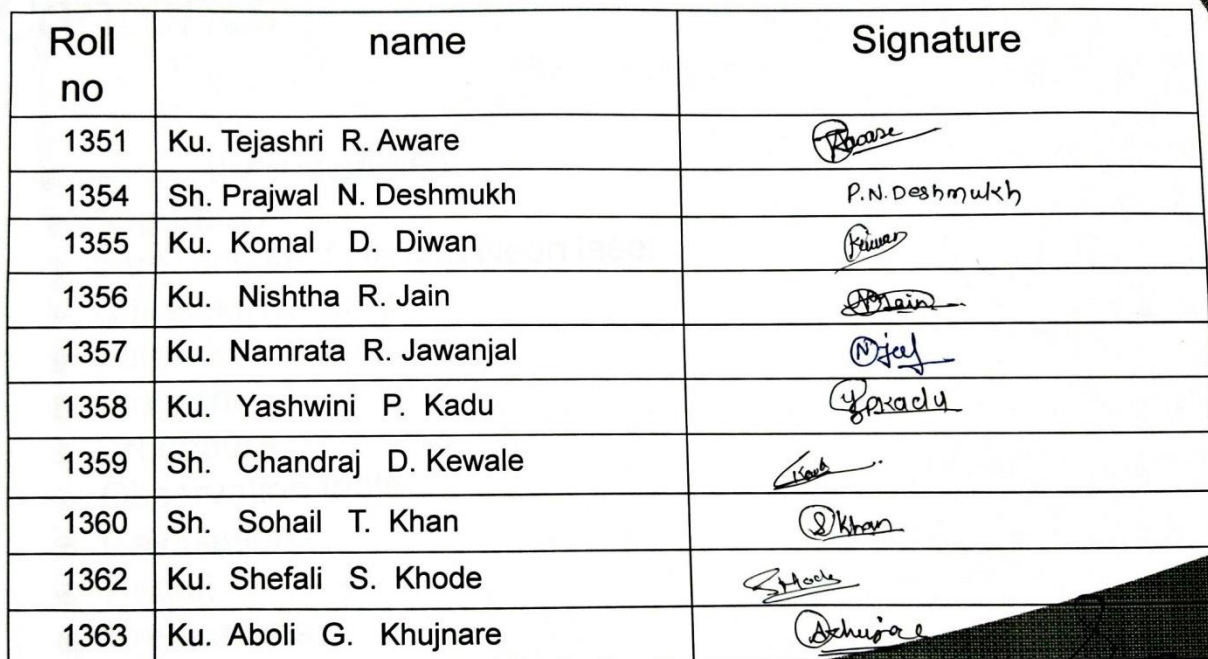 Roll no name Signature
1351 Ku. Tejashri R. Aware
1354 Sh. Prajwal N. Deshmukh P.N. Deshmukh
1355 Ku. Komal D. Diwan
1356 Ku. Nishtha R. Jain
1357 Ku. Namrata R. Jawanjal
1358 Ku. Yashwini P. Kadu Y P Kadu
1359 Sh. Chandraj D. Kewale
1360 Sh. Sohail T. Khan S Khan
1362 Ku. Shefali S. Khode
1363 Ku. Aboli G. Khujnare